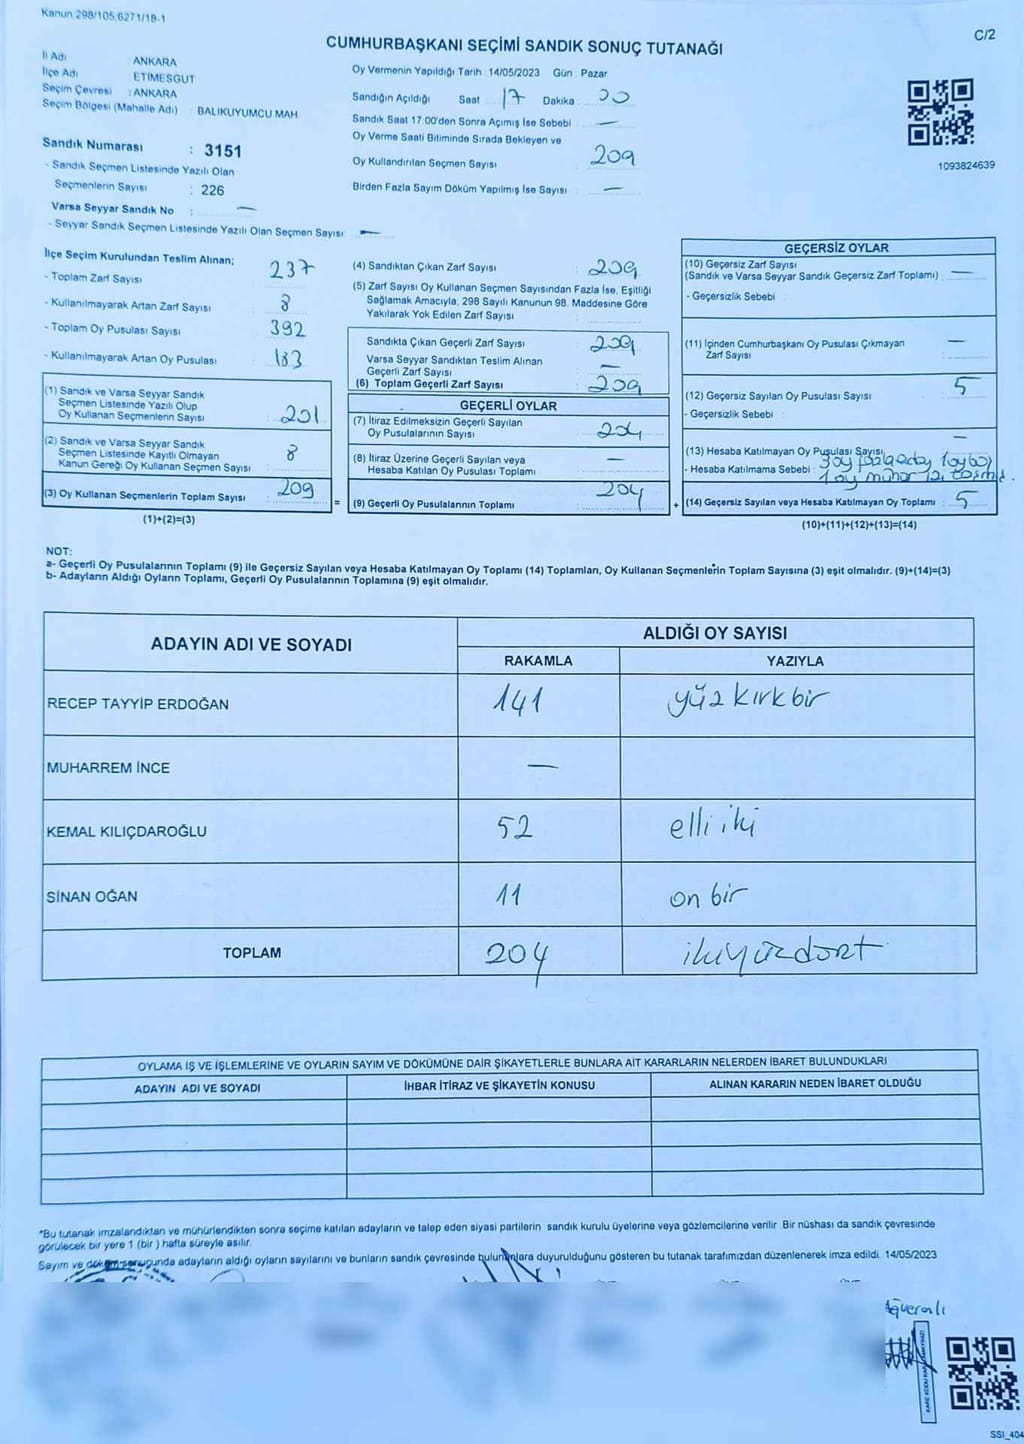 Kanun 298/105,6271/18-1
C/2
CUMHURBAŞKANI SEÇİMİ SANDIK SONUÇ TUTANAĞI
İl Adı : ANKARA
İlçe Adı : ETİMESGUT
Seçim Çevresi : ANKARA
Seçim Bölgesi (Mahalle Adı) : BALIKUYUMCU MAH
Sandık Numarası : 3151
- Sandık Seçmen Listesinde Yazılı Olan
Seçmenlerin Sayısı : 226
Varsa Seyyar Sandık No : —
- Seyyar Sandık Seçmen Listesinde Yazılı Olan Seçmen Sayısı: —
Oy Vermenin Yapıldığı Tarih : 14/05/2023 Gün : Pazar
Sandığın Açıldığı Saat 17 Dakika 00
Sandık Saat 17:00'den Sonra Açımış İse Sebebi : —
Oy Verme Saati Bitiminde Sırada Bekleyen ve
Oy Kullandırılan Seçmen Sayısı 209
Birden Fazla Sayım Döküm Yapılmış İse Sayısı : —
1093824639
İlçe Seçim Kurulundan Teslim Alınan;
- Toplam Zarf Sayısı 237
- Kullanılmayarak Artan Zarf Sayısı 8
- Toplam Oy Pusulası Sayısı 392
- Kullanılmayarak Artan Oy Pusulası 183
(1) Sandık ve Varsa Seyyar Sandık
Seçmen Listesinde Yazılı Olup
Oy Kullanan Seçmenlerin Sayısı : 201
(2) Sandık ve Varsa Seyyar Sandık
Seçmen Listesinde Kayıtlı Olmayan
Kanun Gereği Oy Kullanan Seçmen Sayısı : 8
(3) Oy Kullanan Seçmenlerin Toplam Sayısı : 209
(1)+(2)=(3)
=
(4) Sandıktan Çıkan Zarf Sayısı : 209
(5) Zarf Sayısı Oy Kullanan Seçmen Sayısından Fazla İse, Eşitliği
Sağlamak Amacıyla, 298 Sayılı Kanunun 98. Maddesine Göre
Yakılarak Yok Edilen Zarf Sayısı :
Sandıkta Çıkan Geçerli Zarf Sayısı : 209
Varsa Seyyar Sandıktan Teslim Alınan
Geçerli Zarf Sayısı : —
(6) Toplam Geçerli Zarf Sayısı : 209
GEÇERLİ OYLAR
(7) İtiraz Edilmeksizin Geçerli Sayılan
Oy Pusulalarının Sayısı : 204
(8) İtiraz Üzerine Geçerli Sayılan veya
Hesaba Katılan Oy Pusulası Toplamı : —
(9) Geçerli Oy Pusulalarının Toplamı : 204
+
GEÇERSİZ OYLAR
(10) Geçersiz Zarf Sayısı
(Sandık ve Varsa Seyyar Sandık Geçersiz Zarf Toplamı) : —
- Geçersizlik Sebebi :
(11) İçinden Cumhurbaşkanı Oy Pusulası Çıkmayan
Zarf Sayısı : —
(12) Geçersiz Sayılan Oy Pusulası Sayısı : 5
- Geçersizlik Sebebi :
(13) Hesaba Katılmayan Oy Pusulası Sayısı : —
- Hesaba Katılmama Sebebi : 3 oy fazla aday 1 oy boş
1 oy
(14) Geçersiz Sayılan veya Hesaba Katılmayan Oy Toplamı : 5
(10)+(11)+(12)+(13)=(14)
NOT:
a- Geçerli Oy Pusulalarının Toplamı (9) ile Geçersiz Sayılan veya Hesaba Katılmayan Oy Toplamı (14) Toplamları, Oy Kullanan Seçmenlerin Toplam Sayısına (3) eşit olmalıdır. (9)+(14)=(3)
b- Adayların Aldığı Oyların Toplamı, Geçerli Oy Pusulalarının Toplamına (9) eşit olmalıdır.
ADAYIN ADI VE SOYADI
ALDIĞI OY SAYISI
RAKAMLA YAZIYLA
RECEP TAYYİP ERDOĞAN 141 yüz kırk bir
MUHARREM İNCE —
KEMAL KILIÇDAROĞLU 52 elli iki
SİNAN OĞAN 11 on bir
TOPLAM 204 ikiyüzdört
OYLAMA İŞ VE İŞLEMLERİNE VE OYLARIN SAYIM VE DÖKÜMÜNE DAİR ŞİKAYETLERLE BUNLARA AİT KARARLARIN NELERDEN İBARET BULUNDUKLARI
ADAYIN ADI VE SOYADI İHBAR İTİRAZ VE ŞİKAYETİN KONUSU ALINAN KARARIN NEDEN İBARET OLDUĞU
*Bu tutanak imzalandıktan ve mühürlendikten sonra seçime katılan adayların ve talep eden siyasi partilerin sandık kurulu üyelerine veya gözlemcilerine verilir. Bir nüshası da sandık çevresinde
görülecek bir yere 1 (bir) hafta süreyle asılır.
Sayım ve döküm sonucunda adayların aldığı oyların sayılarını ve bunların sandık çevresinde bulunanlara duyurulduğunu gösteren bu tutanak tarafımızdan düzenlenerek imza edildi. 14/05/2023
SSI_404